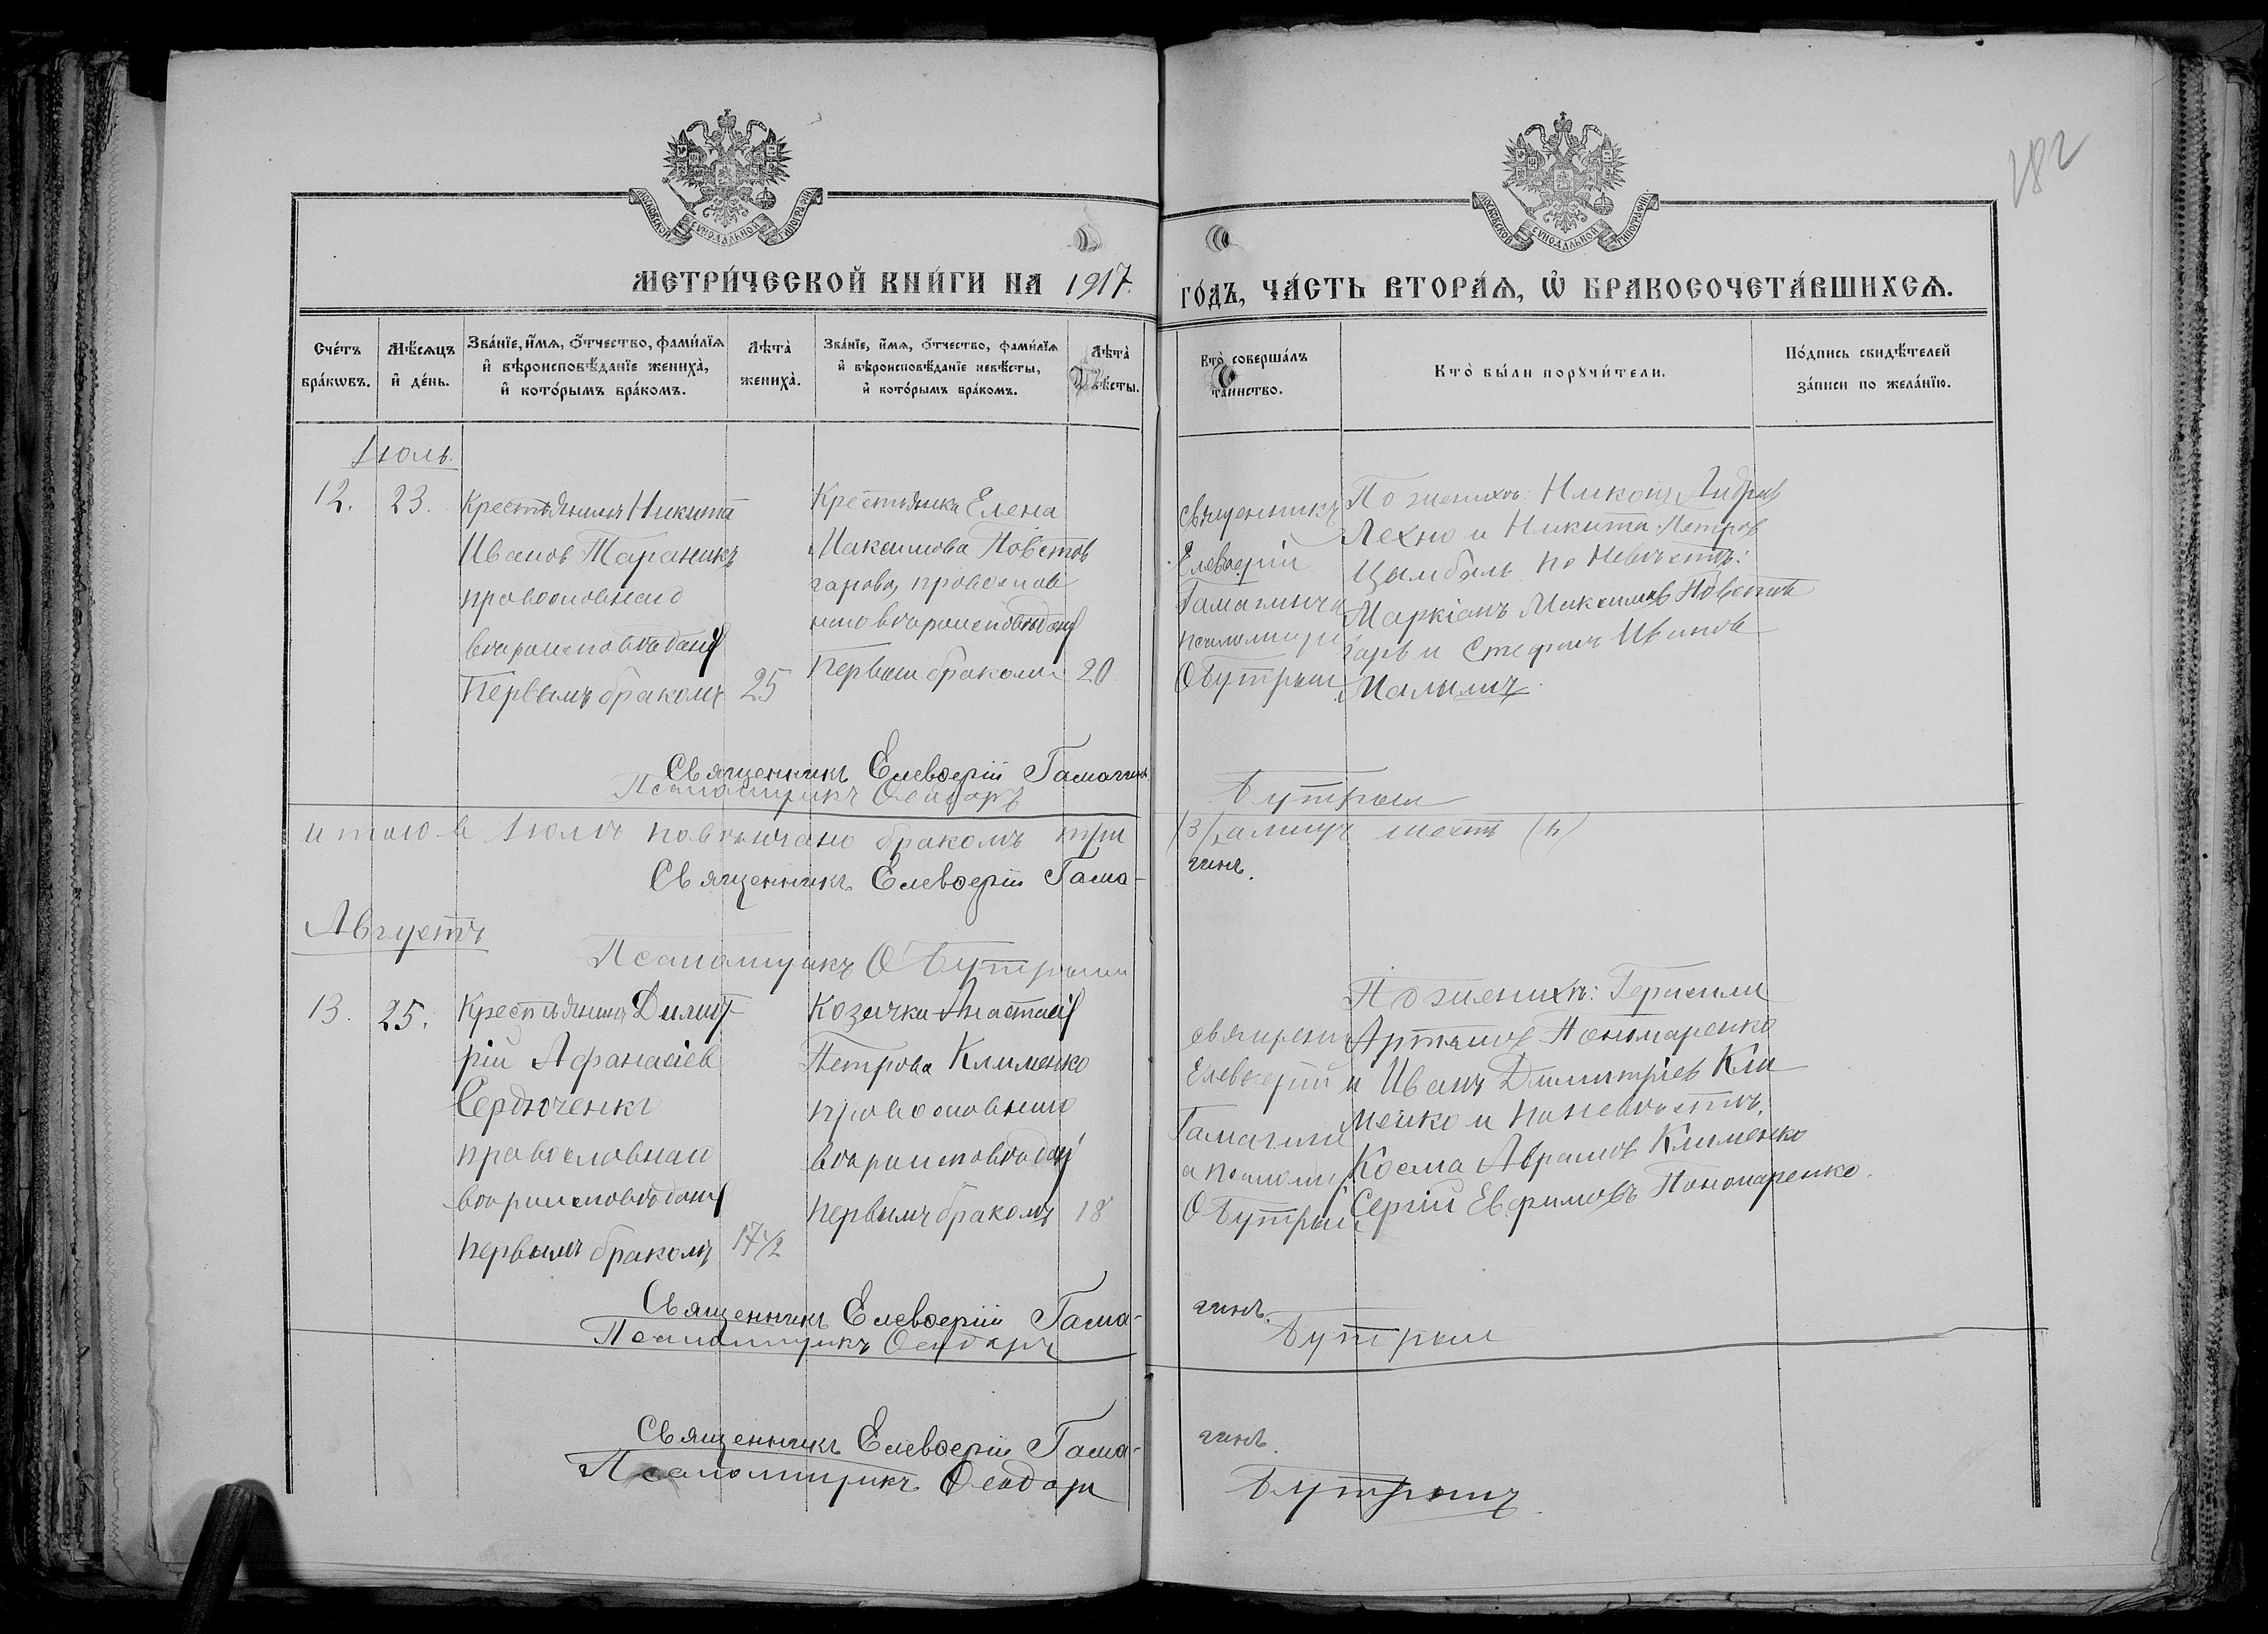 182
МОСКОВСКОЙ СѴНОДАЛЬНОЙ ТИПОГРАФІИ
МОСКОВСКОЙ СѴНОДАЛЬНОЙ ТИПОГРАФІИ
МЕТРИ́ЧЕСКОЙ КНИ́ГИ НА 1917.
ГО́ДЪ, ЧА́СТЬ ВТОРА́Ѧ, Ѡ҆ БРАКОСОЧЕТА́ВШИХСѦ.
Сче́тъ бра́кѡвъ.
Мѣ́сѧцъ и҆ де́нь.
Зва́нїе, и҆́мѧ, ѻ҆́тчество, фами́лїѧ и҆ вѣроисповѣ́данїе жениха̀, и҆ кото́рымъ бра́комъ.
Лѣта̀ жениха̀.
Зва́нїе, и҆́мѧ, ѻ҆́тчество, фами́лїѧ и҆ вѣроисповѣ́данїе невѣ́сты, и҆ кото́рымъ бра́комъ.
Лѣта̀ невѣ́сты.
Кто̀ соверша́лъ та́инство.
Кто̀ бы́ли порꙋчи́тели.
По́дпись свидѣ́телей за́писи по жела́нїю.
Іюль.
12.
23.
Крестьянинъ Никита
Иванов Тараникъ
православнаго
вѣроисповѣданія
Первымъ бракомъ
25
Крестьянка Елена
Максимова Повстов
гарова, православ
наго вѣроисповѣданія
Первым браком
20
священникъ
Елевѳерій
Гамагинъ и
псаломщик
Ѳ Бутрым
По женихѣ: Никонъ Андреев
Лехно и Никита Петров
Цымбаль по Невѣстѣ:
Маркіанъ Максимов Повстов
гарь и Стефанъ Иванов
Малышъ
Священникъ Елевѳерій Гамагинъ
Псаломщикъ Ѳеодоръ Бутрым
итого в Іюлѣ повѣнчано браком три
(3) а лицъ шесть (6)
Священникъ Елевѳерій Гама-
гинъ.
Августъ
Псаломщикъ Ѳ Бутрым
13.
25.
Крестьянинъ Димит-
рій Афанасіев
Сердюченко
православнаго
вѣроисповѣданія
первымъ бракомъ
17½
Козачка Анастасія
Петрова Клименко
православнаго
вѣроисповѣданія
первымъ бракомъ
18
священ
Елевѳерій
Гамагинъ
а псаломщ
Ѳ Бутрым
По женихѣ: Герасим
Артемов Пономаренко
и Иванъ Димитріев Кли
менко и по невѣстѣ:
Косма Аврамов Клименко
Сергій Евфимовъ Пономаренко.
Священникъ Елевѳерій Гама-
гинъ.
Псаломщикъ Ѳеодоръ Бутрым
Священникъ Елевѳерій Гама-
гинъ.
Псаломщикъ Ѳеодоръ Бутрымъ